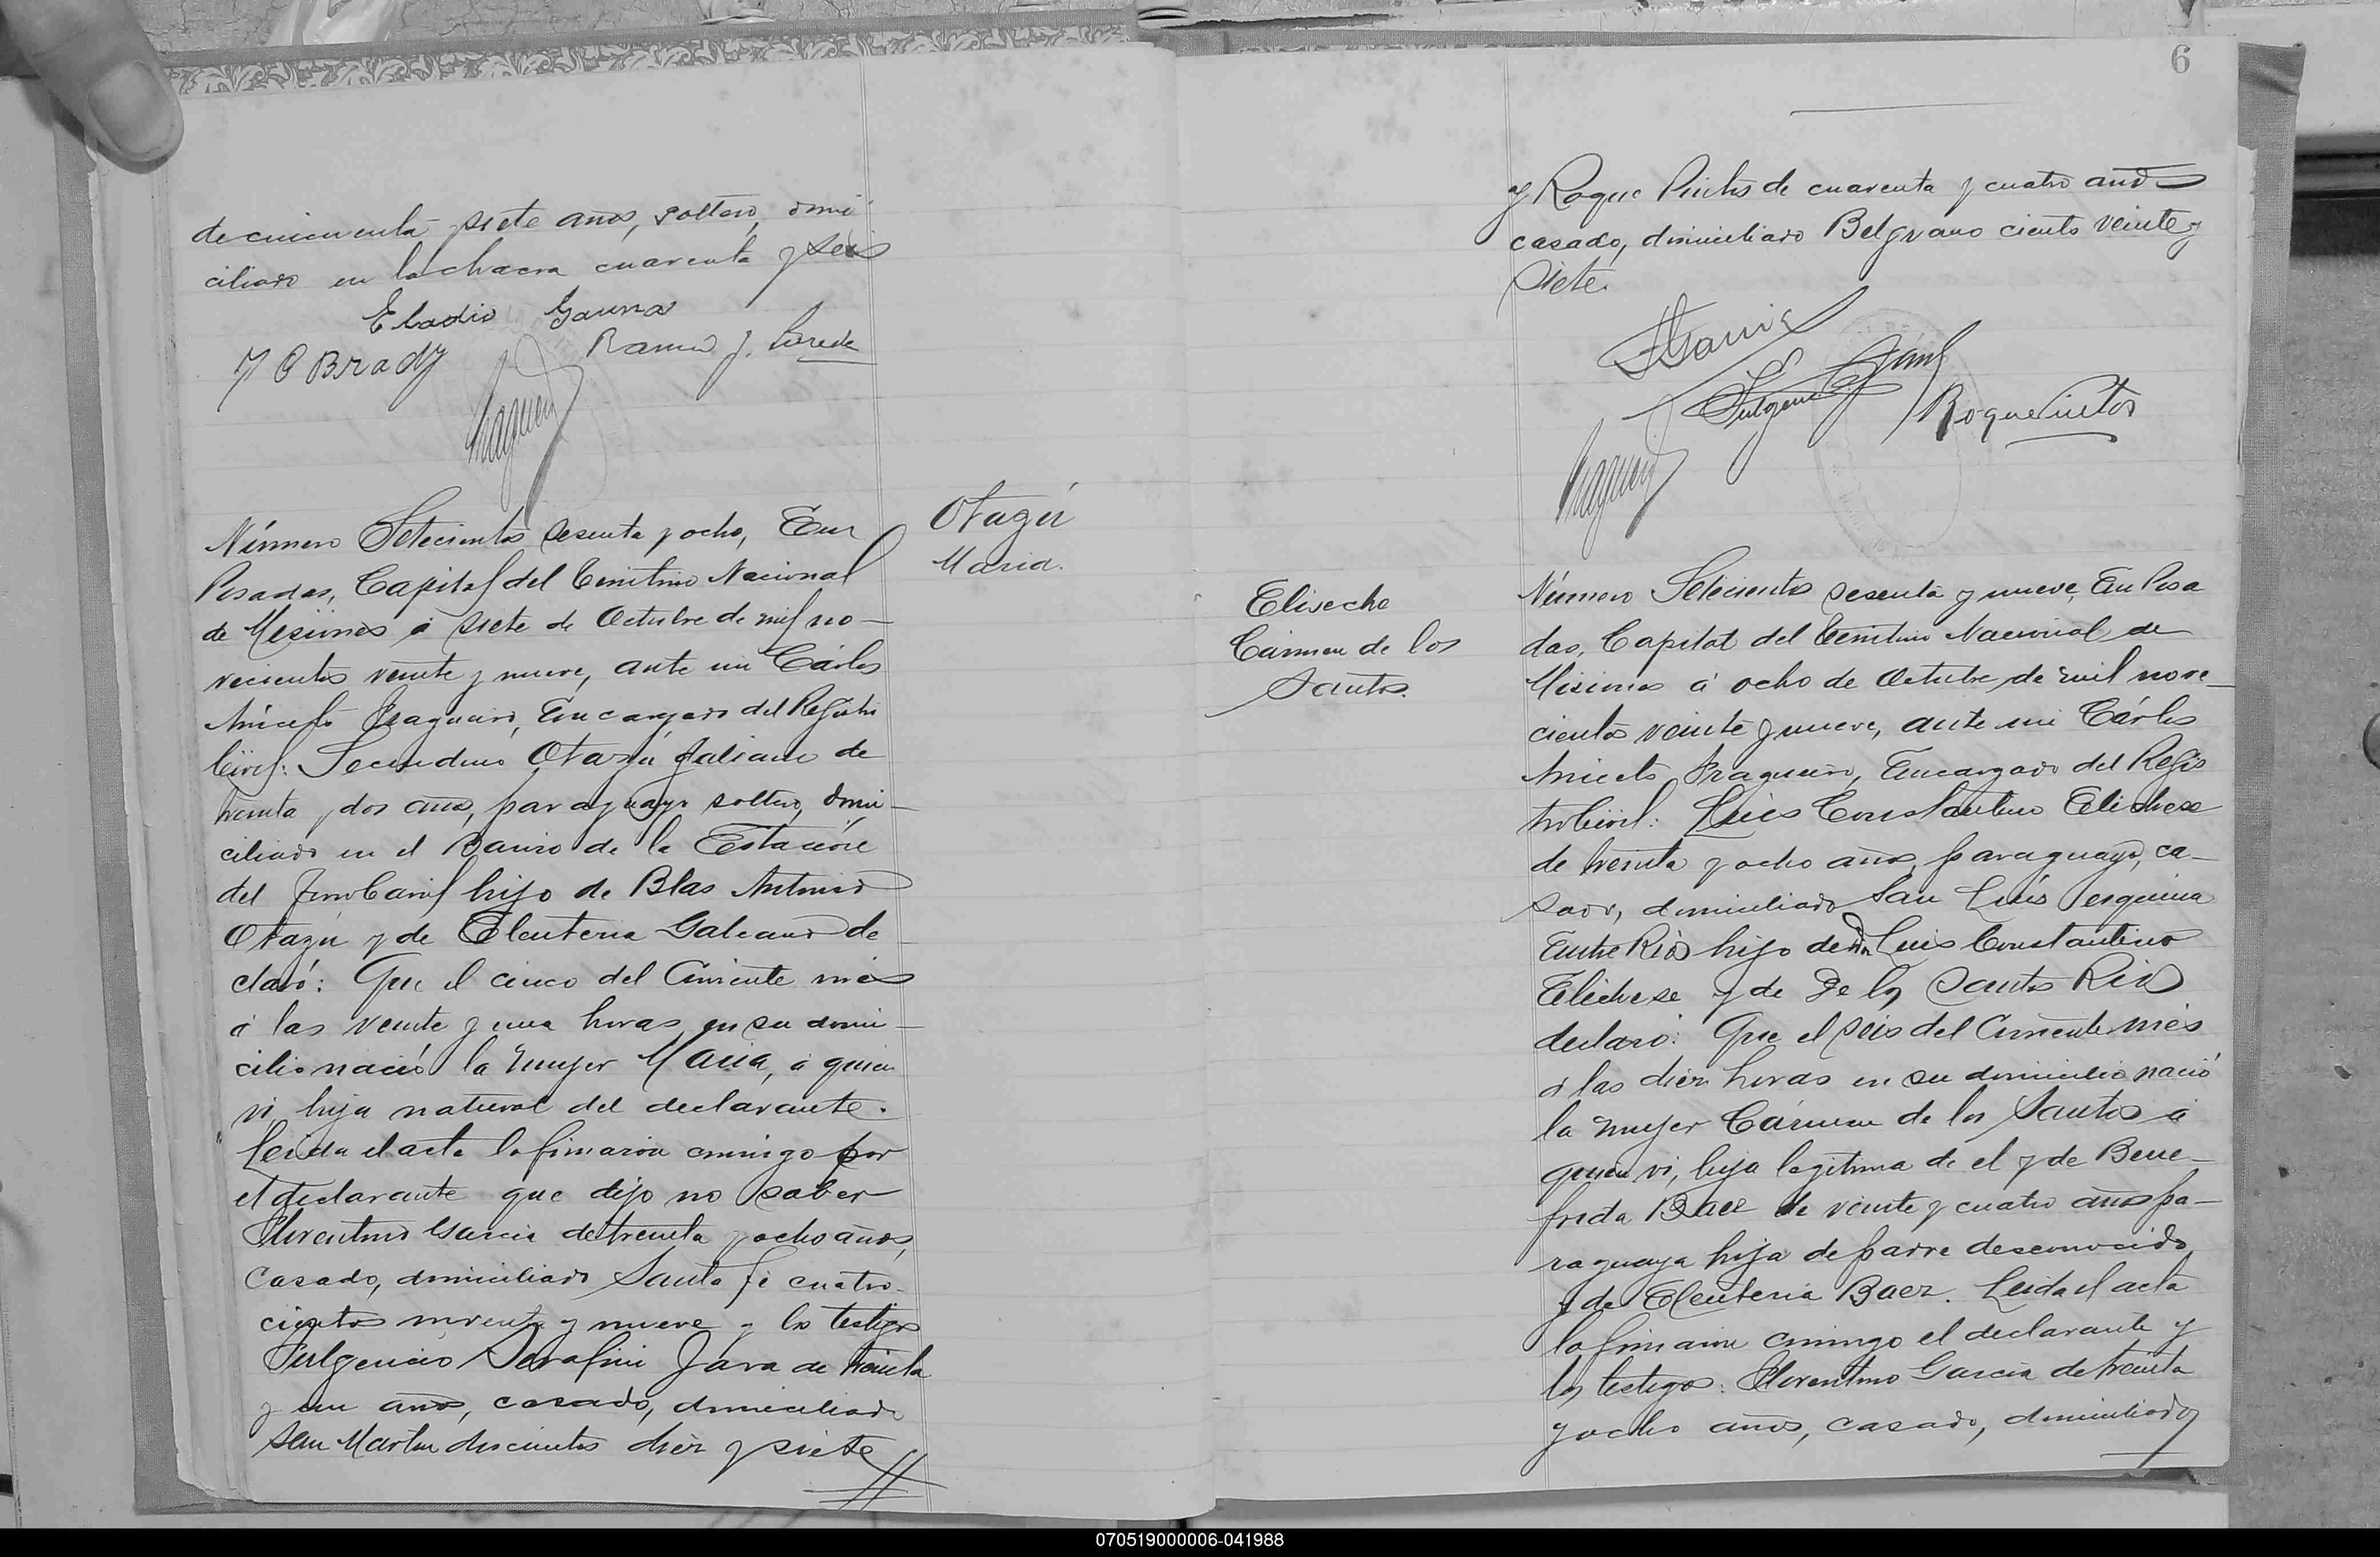 de cincuenta y siete años, soltero, domi
ciliado en la chacra cuarenta y seis
Eladio Gauna
J O Brady
Ramon J.
Número Setecientos sesenta y ocho, En
Posadas, Capital del Territorio Nacional
de Misiones á siete de Octubre de mil no-
vecientos veinte y nueve, ante mi Cárlos
Aniceto Fragueiro, Encargado del Registro
Civil: Secundino Otazú Galeano de
treinta y dos años, paraguayo soltero, domi-
ciliado en el Barrio de la Estación
del FerroCarril hijo de Blas Antonio
Otazú y de Eleuteria Galeano de
claró: Que el cinco del Corriente mes
á las veinte y una horas en su domi-
cilio nació la mujer Maria, á quien
vi hija natural del declarante.
Leida el acta la firmaron conmigo por
el declarante que dijo no saber
Florentino Garcia de treinta y ocho años,
casado, domiciliado Santa Fé cuatro-
cientos noventa y nueve y los testigos
Fulgencio Serafini Jara de treinta
y un años, casado, domiciliado
San Martin doscientos diez y siete
Otazú
Maria.
6
y Roque Pintos de cuarenta y cuatro años
casado, domiciliado Belgrano ciento veinte y
siete.
FGarcia
Fulgencio SJara
Roque Pintos
Eliseche
Cármen de los
Santos.
Número Setecientos sesenta y nueve, En Posa
das, Capital del Territorio Nacional de
Misiones á ocho de Octubre de mil nove-
cientos veinte y nueve, ante mi Cárlos
Aniceto Fragueiro, Encargado del Regis
tro Civil: Luis Constantino Elichese
de treinta y ocho años, paraguayo, ca-
sado, domiciliado San Luis esquina
Entre Rios hijo de Dn Luis Constantino
Elichese y de De los Santos Rios
declaró: Que el seis del Corriente mes
á las diez horas en su domicilio nació
la mujer Cármen de los Santos á
quien vi, hija legítima de el y de Bene-
frida Baez de veinte y cuatro años pa-
raguaya hija de padre desconocido
y de Eleuteria Baez. Leida el acta
la firmaron conmigo el declarante y
los testigos: Florentino Garcia de treinta
y ocho años, casado, domiciliado
070519000006-041988